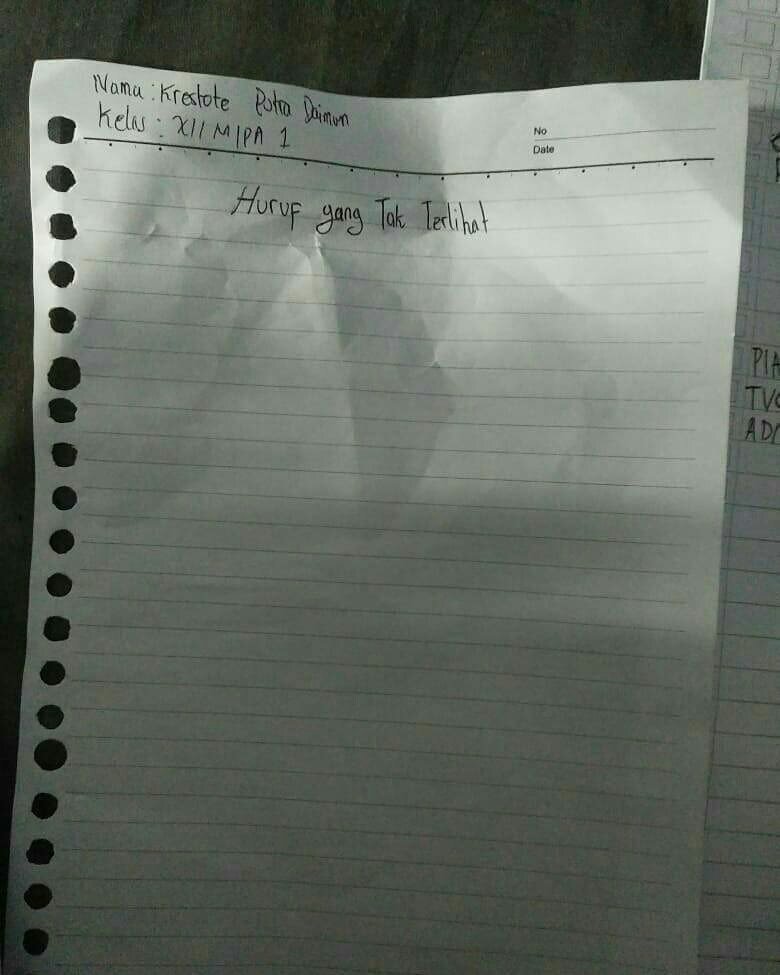 Nama : Krestote Putra Daimun
Kelas : XII MIPA 1
No
Date
Huruf yang Tak Terlihat
PIA
TVC
AD